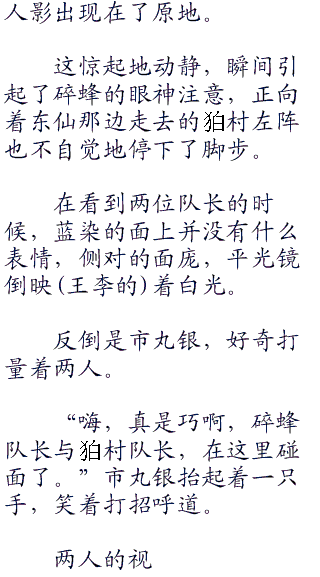 人影出现在了原地。
这惊起地动静，瞬间引
起了碎蜂的眼神注意，正向
着东仙那边走去的狛村左阵
也不自觉地停下了脚步。
在看到两位队长的时
候，蓝染的面上并没有什么
表情，侧对的面庞，平光镜
倒映(王李的)着白光。
反倒是市丸银，好奇打
量着两人。
“嗨，真是巧啊，碎蜂
队长与狛村队长，在这里碰
面了。”市丸银抬起着一只
手，笑着打招呼道。
两人的视